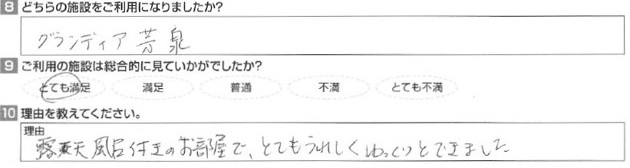 8 どちらの施設をご利用になりましたか?
グランディア芳泉
9 ご利用の施設は総合的に見ていかがでしたか?
とても満足 満足 普通 不満 とても不満
10 理由を教えてください。
理由
露天風呂付きのお部屋で、とてもうれしくゆっくりとできました